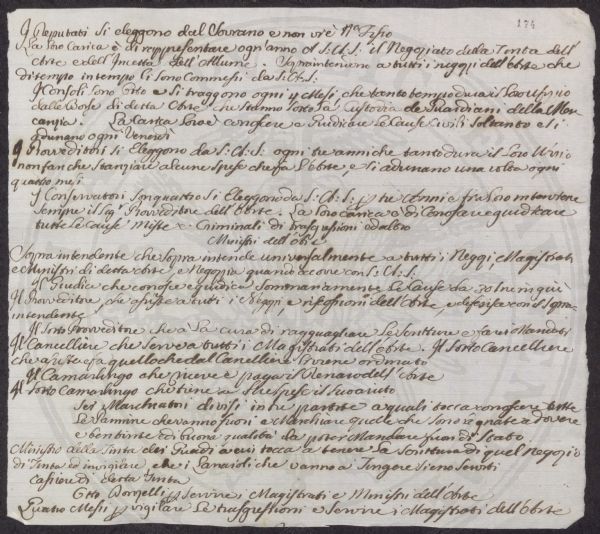 174
I Deputati si eleggono dal Sovrano e non vi è N.o fisso
La loro Carica è di rappresentare ogni anno A S:A:S: il Negoziato della Tinta dell'
Arte e dell'Incetta dell'Allume. Sopraintendono a tutti i negozi dell'Arte che
di tempo in tempo li sono Commessi da S:A:S:
I Consoli sono Otto e si traggono ogni 4 Mesi, che tanto tempo dura il loro Ufizio
dalle Borse di detta Arte che stanno sotto la Custodia de Guardiani della Mer-
canzia. La Carica loro è conoscere e Giudicare le Cause Civili soltanto e si
Adunano ogni Venerdì
I Proveditori si eleggono da S:A:S: ogni tre anni che tanto dura il loro Ufizio
non fan che stanziare alcune spese che fa l'Arte, e si adunano una volta ogni
quattro mesi
I Conservatori son quattro si Eleggono da S:A:S: p tre Anni e fra loro interviene
sempre il Sig.r Proveditore dell'Arte. La loro carica è di Conoscere e giudicare
tutte le Cause Miste e Criminali di trasgressioni ed altro
Ministri dell'Arte
Sopraintendente che sopra intende universalmente a tutti i Negozi, Magistrati
e Ministri di detta Arte, e Negozia quando occorre con S:A:S:
Il Giudice che conosce e giudica sommariamente le Cause da 70 lire in giù
Il Proveditore, che assiste a tutti i Negozi, e riscossioni dell'Arte, e con il Sopra-
intendente
Il Sotto Proveditore che a la cura di ragguagliare le Scritture e fare i Mandati
Il Cancelliere che serve a tutti i Magistrati dell'Arte. Il Sotto Cancelliere
che quello che dal Cancelliere li viene ordinato
Il Camarlingo che riceve e paga il Denaro dell'Arte
Il Sotto Camarlingo che tiene a Sue Spese il Suo aiuto
Sei Marchiatori divisi in tre partite a quali tocca conoscere tutte
le Pannine che vanno fuori e Marchiare quelle che sono a dovere
e ben tinte e di buona qualità da poter Mandare fuori di Stato
Ministro della Tinta dei Guadi a cui tocca a tenere la Scrittura di quel Negozio
di Tinta ed invigiare che i Lanaioli che vanno a Tingere sieno serviti
Cassiere di detta Tinta
Otto Donzelli p servire i Magistrati e Ministri dell'Arte
Quatro Messi p vigilare le trasgressioni e servire i Magistrati dell'Arte